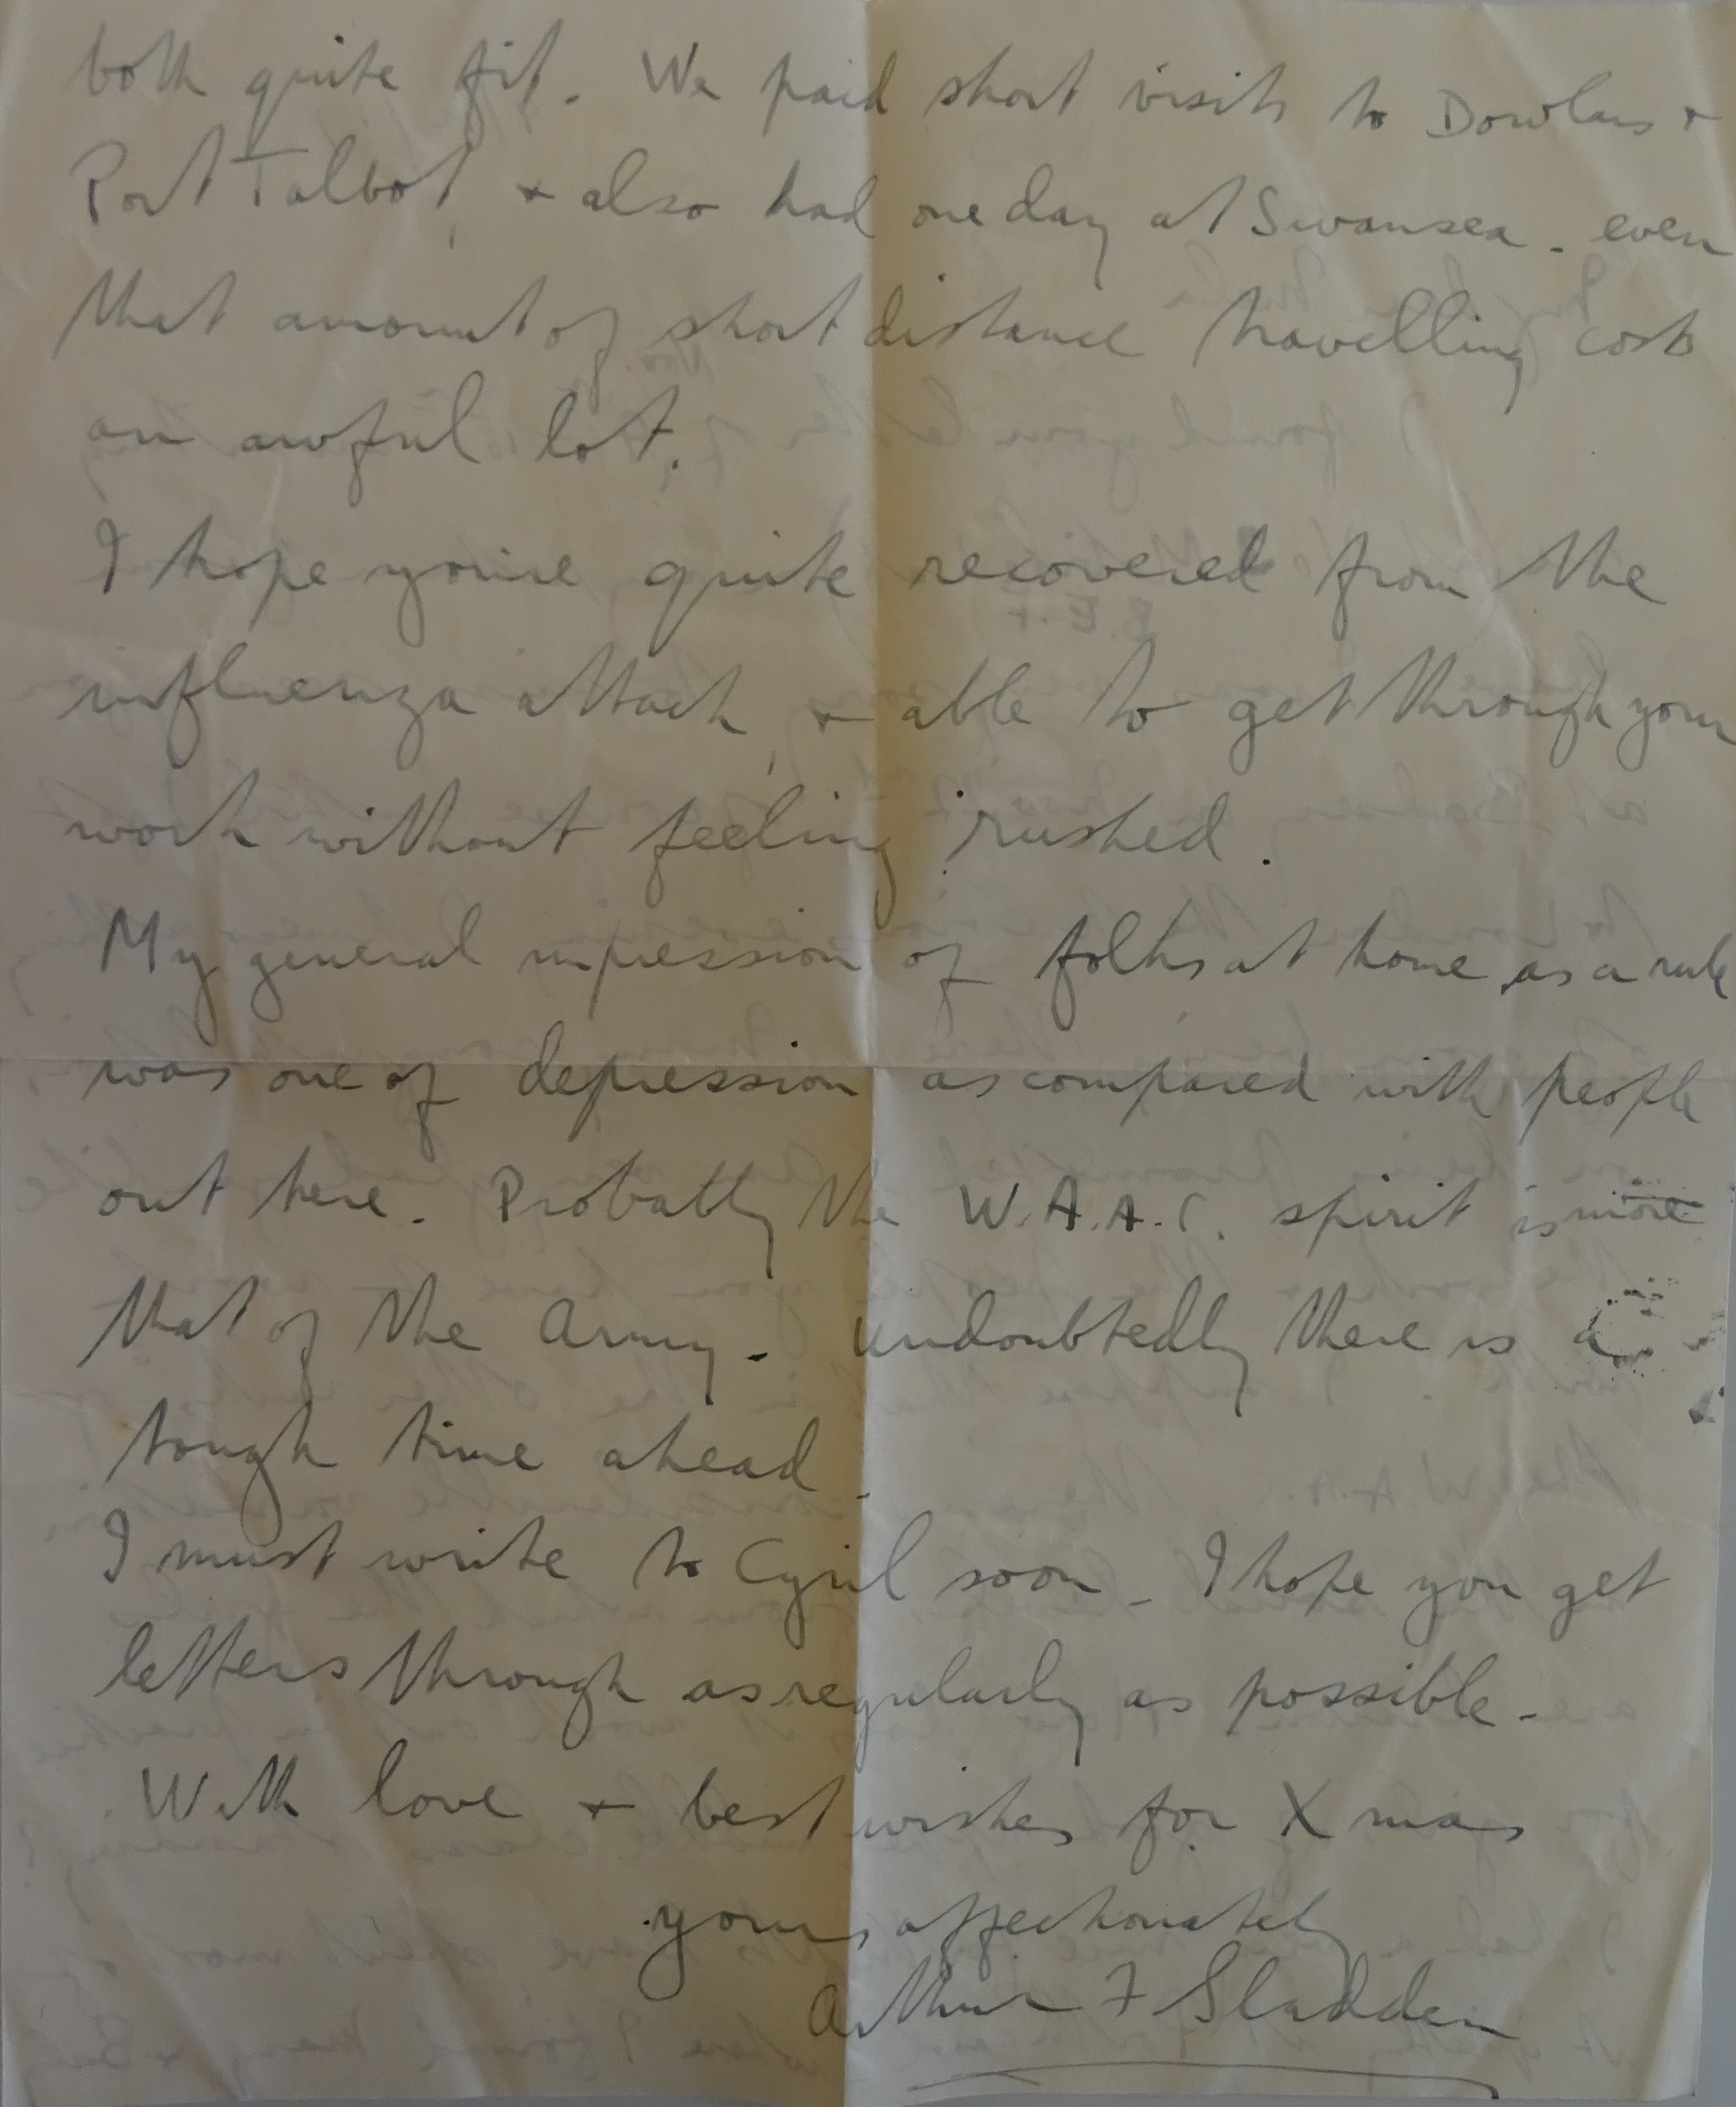 both quite fit. We paid short visits to Dowlais +
Port Talbot, + also had one day at Swansea - even
that amount of short distance travelling costs
an awful lot.
I hope you're quite recovered from the
influenza attack, + able to get through your
work without feeling rushed.
My general impression of folks at home, as a rule
was one of depression as compared with people
out here. Probably the W.A.A.C. spirit is more
that of the Army - undoubtedly there is a
tough time ahead.
I must write to Cyril soon - I hope you get
letters through as regularly as possible -
With love + best wishes for Xmas
yours affectionately
Arthur F Sladden